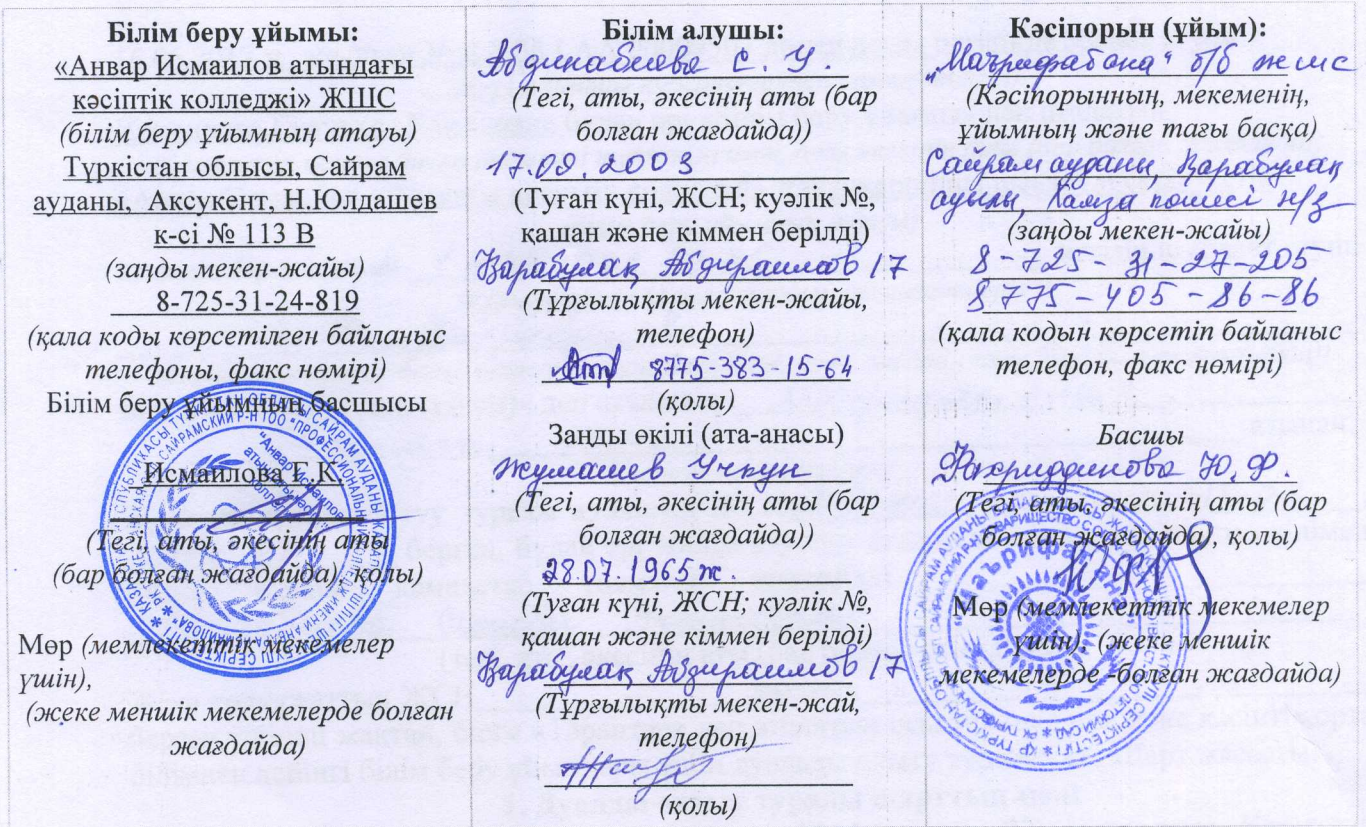 Білім беру ұйымы:
«Анвар Исмаилов атындағы
кәсіптік колледжі» ЖШС
(білім беру ұйымның атауы)
Түркістан облысы, Сайрам
ауданы, Аксукент, Н.Юлдашев
к-сі № 113 В
(заңды мекен-жайы)
8-725-31-24-819
(қала коды көрсетілген байланыс
телефоны, факс нөмірі)
Білім беру ұйымның басшысы
Исмаилова Г.К.
(Тегі, аты, әкесінің аты
(бар болған жағдайда), қолы)
Мөр (мемлекеттік мекемелер
үшін),
(жеке меншік мекемелерде болған
жағдайда)
Білім алушы:
Абдинабиева С. У.
(Тегі, аты, әкесінің аты (бар
болған жағдайда))
17.09.2003
(Туған күні, ЖСН; куәлік №,
қашан және кіммен берілді)
Қарабулақ Абдираимов 17
(Тұрғылықты мекен-жайы,
телефон)
8775-383-15-64
(қолы)
Заңды өкілі (ата-анасы)
Жумашев Учкун
(Тегі, аты, әкесінің аты (бар
болған жағдайда))
28.07.1965ж.
(Туған күні, ЖСН; куәлік №,
қашан және кіммен берілді)
Қарабулақ Абзираимов 17
(Тұрғылықты мекен-жай,
телефон)
(қолы)
Кәсіпорын (ұйым):
„Маърифабона“ б/б жшс
(Кәсіпорынның, мекеменің,
ұйымның және тағы басқа)
Сайрам ауданы, Қарабулақ
ауылы, көшесі н/з
(заңды мекен-жайы)
8-725-31-27-205
8775-405-86-86
(қала кодын көрсетіп байланыс
телефон, факс нөмірі)
Басшы
Фахриддинова Ю.Ф.
(Тегі, аты, әкесінің аты (бар
болған жағдайда), қолы)
Мөр (мемлекеттік мекемелер
үшін), (жеке меншік
мекемелерде -болған жағдайда)